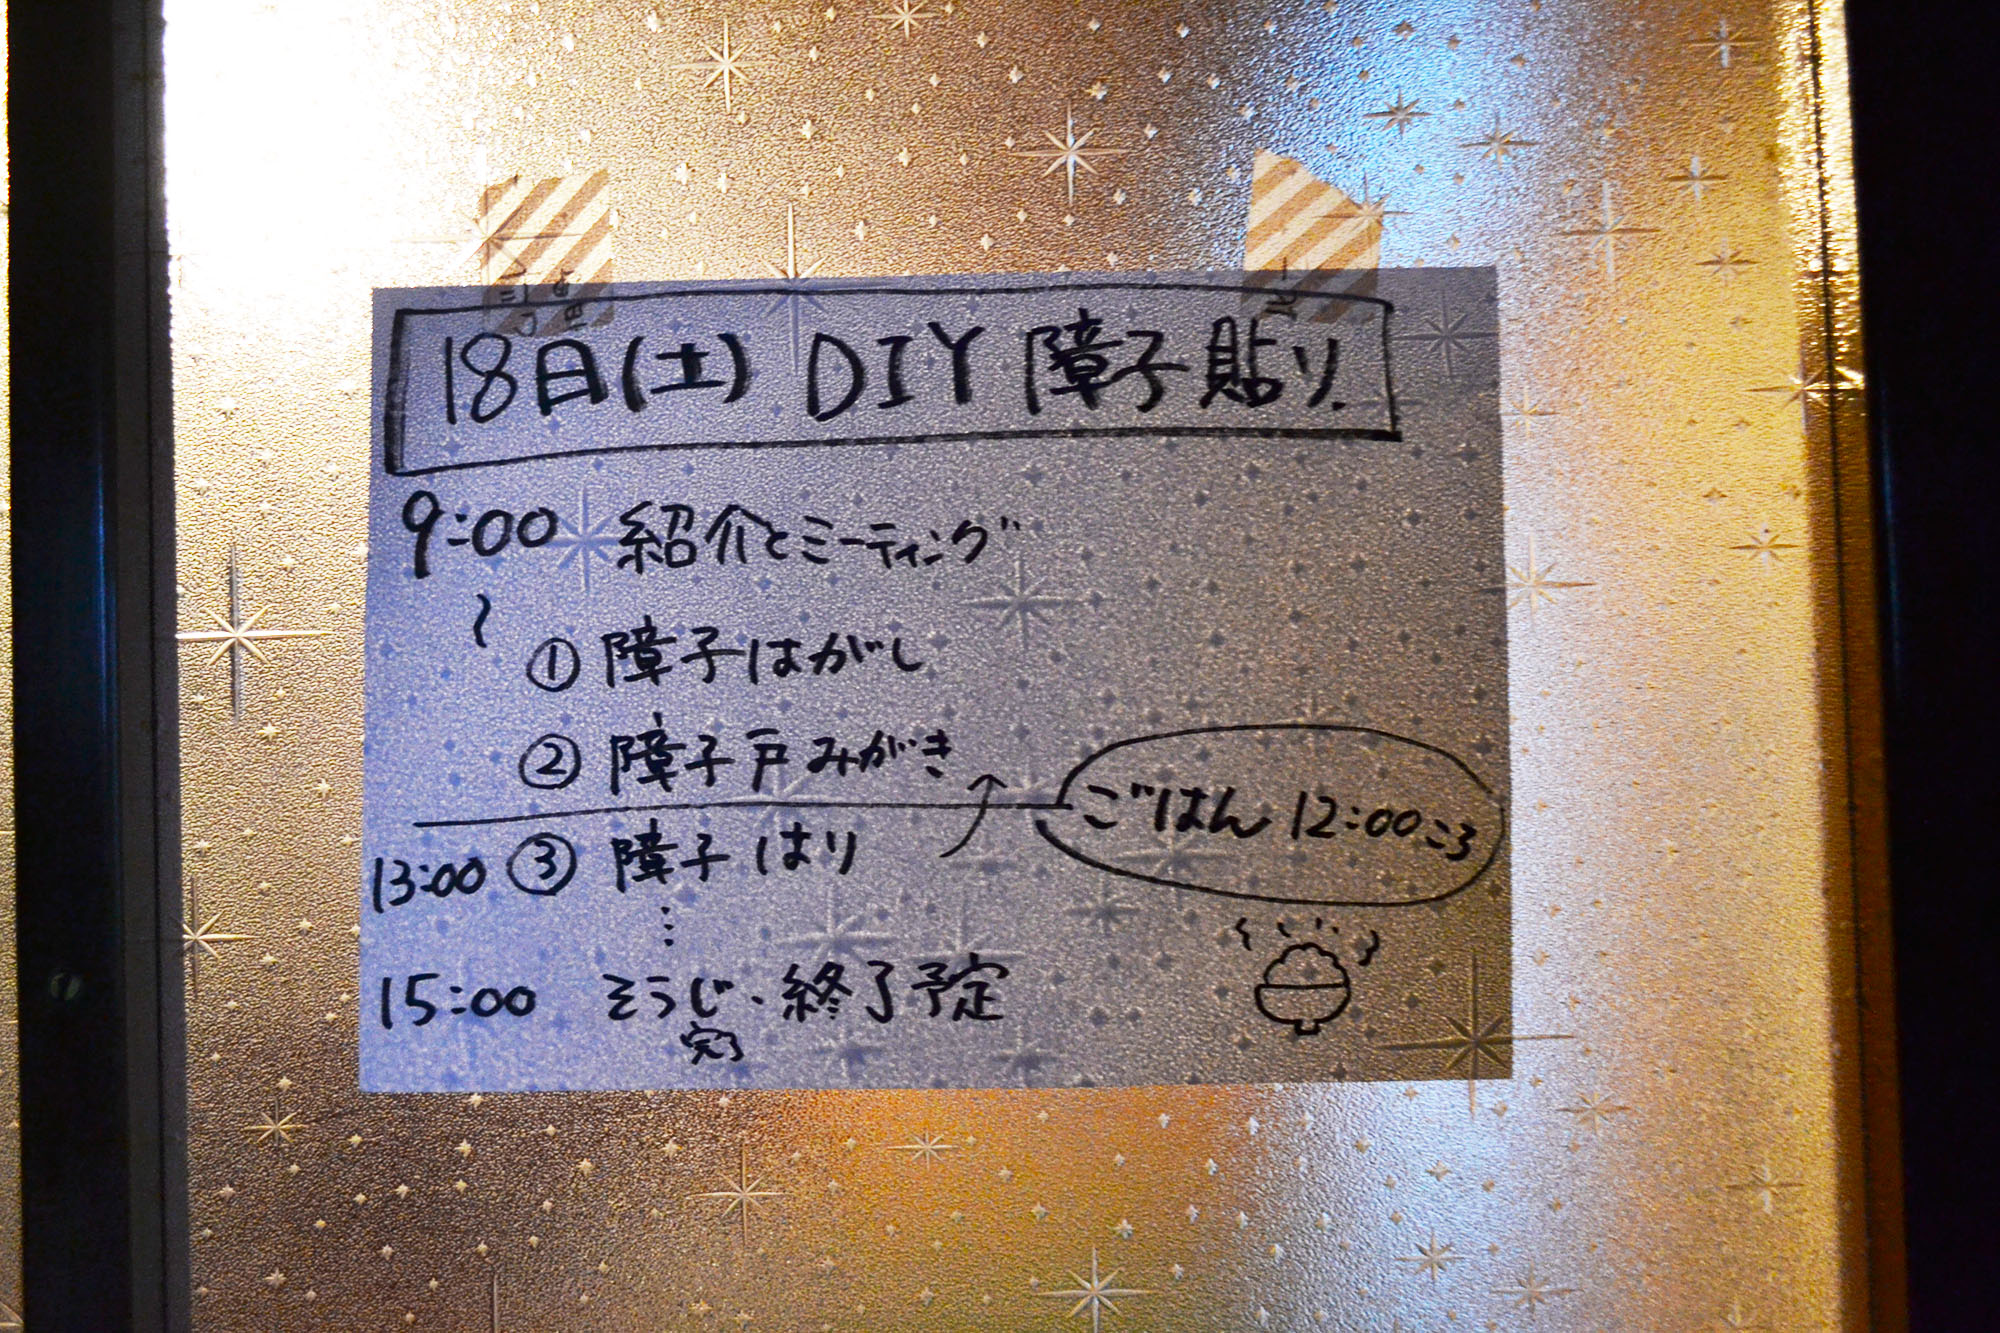 18日(土) DIY 障子貼り.
9:00 紹介とミーティング
〜
① 障子はがし
② 障子戸みがき
ごはん 12:00ころ
13:00 ③ 障子はり
⋮
15:00 そうじ、終了予定
完了